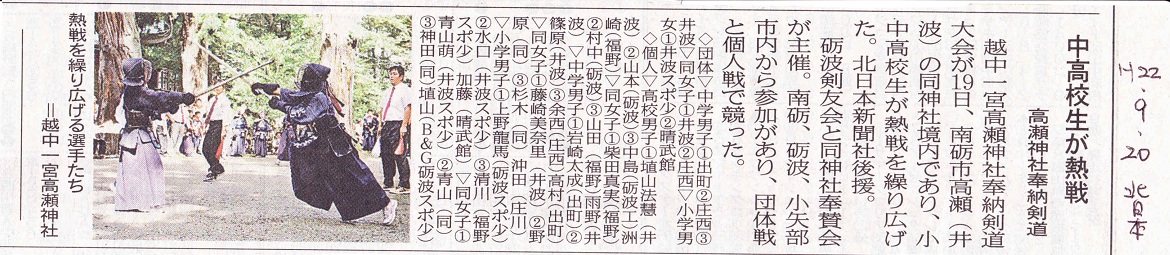 H22.9.20 北日本
中高校生が熱戦
高瀬神社奉納剣道
越中一宮高瀬神社奉納剣道
大会が19日、南砺市高瀬(井
波)の同神社境内であり、小
中高校生が熱戦を繰り広げ
た。北日本新聞社後援。
砺波剣友会と同神社奉賛会
が主催。南砺、砺波、小矢部
市内から参加があり、団体戦
と個人戦で競った。
◇団体▽中学男子①出町②庄西③
井波▽同女子①井波②庄西▽小学男
女①井波スポ少②晴武館
◇個人▽高校男子①埴山伝慧(井
波)②山本(砺波)③中島(砺波工)洲
崎(福野)▽同女子①柴田真実(福野)
②村中(砺波)③山田(福野)雨野(井
波)▽中学男子①岩崎太成(出町)②
篠原(井波)③余西(庄西)高村(出町)
▽同女子①藤崎美奈里(井波)②野
原(同)③杉木(同)沖田(庄川)
▽小学男子①上野龍馬(砺波スポ少)
②水口(井波スポ少)③清川(福野
スポ少)加藤(晴武館)▽同女子①
青山萌(井波スポ少)②青山(同)
③神田(同)埴山(B&G砺波スポ少)
熱戦を繰り広げる選手たち
=越中一宮高瀬神社